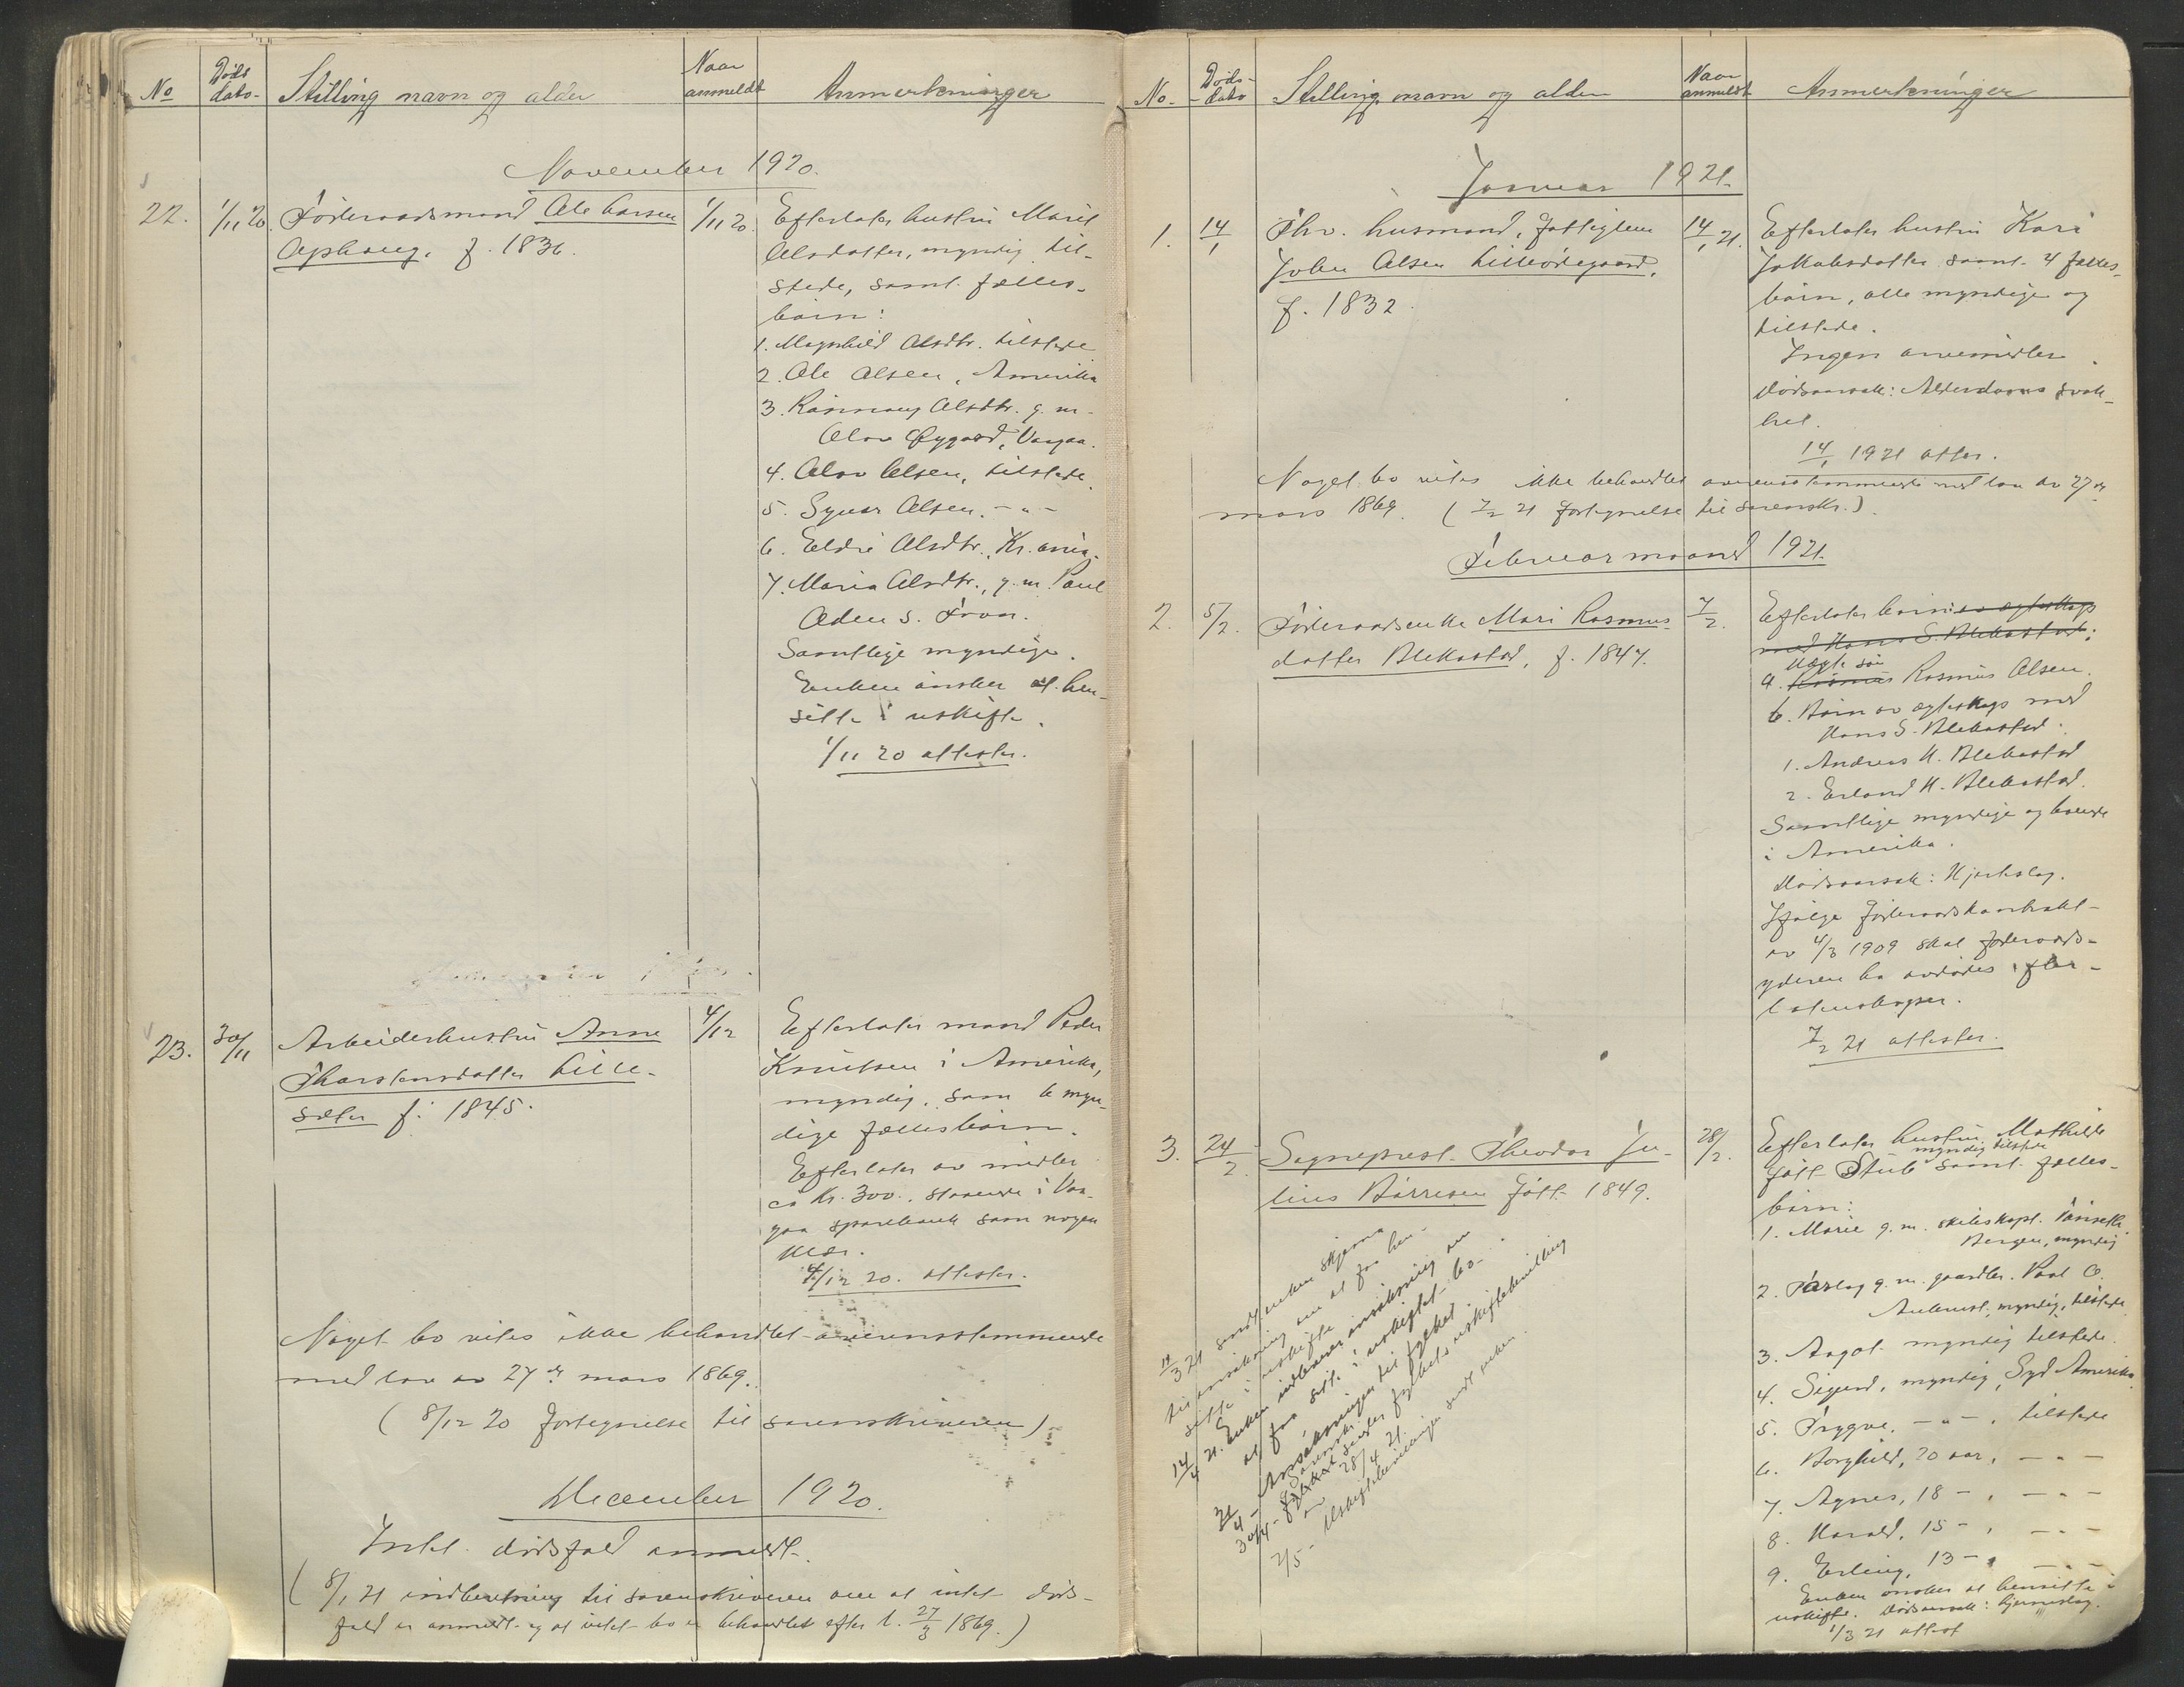 No
Døds
dato-
Stilling navn og alder
Naar
anmeldt
Anmerkninger
November 1920.
22.
1/11 20.
Føderaadsmand Ole Larsen
Ophaug, f. 1836.
1/11 20.
Efterlater hustru Marit
Olsdatter, myndig til-
stede, samt fælles-
børn:
1. Magnhild Olsdtr. tilstede
2. Ole Olsen, Amerika
3. Rønnaug Olsdtr. g. m.
Olav Øygard, Vaagaa.
4. Olav Olsen, tilstede.
5. Syver Olsen. - " -
6. Eldri Olsdtr., Kr.ania.
7. Maria Olsdtr., g. m. Paul
Øden S. Fron.
Samtlige myndige.
Enken ønsker at hen-
sitte i uskifte.
1/11 20 attester.
23.
30/11
Arbeiderhustru Anne
Thorstensdatter Lille-
sæter f. 1845.
4/12
Efterlater mand Peder
Knutsen i Amerika,
myndig, samt 6 myn-
dige fællesbørn.
Efterlater av midler
ca Kr. 300., staaende i Vaa-
gaa sparebank samt nogen
klær.
4/12 20. attester.
Noget bo vites ikke behandlet overensstemmende
med lov av 27de mars 1869.
( 8/12 20 fortegnelse til sorenskriveren )
December 1920.
Intet dødsfald anmeldt.
( 8/1 21 indberetning til sorenskriveren om at intet døds-
fald er anmeldt og at intet bo er behandlet efter l. 27/3 1869. )
No.
Døds-
dato
Stilling, navn og alder
Naar
anmeldt
Anmerkninger
Januar 1921.
1.
14/1
Fhv. husmand, fattiglem
John Olsen Lilleødegaard,
f. 1832.
14/1 21.
Efterlater hustru Kari
Jakobsdatter samt 4 fælles-
børn, alle myndige og
tilstede.
Ingen arvemidler.
Dødsaarsak: Alderdoms svak-
het.
14/1 1921 attes.
Noget bo vites ikke behandlet overensstemmende med lov av 27de
mars 1869. ( 7/2 21 fortegnelse til sorenskr. )
Februar maaned 1921.
2.
5/2.
Føderaadsenke Mari Rasmus-
datter Blekastad, f. 1847.
7/2.
Efterlater børn av egteskap
med Hans S. Blekastad:
Uegte søn
a. Rasmus Rasmus Olsen.
b. Børn av egteskap med
Hans S. Blekastad:
1. Andreas H. Blekastad
2. Erland H. Blekastad.
Samtlige myndige og boende
i Amerika.
Dødsaarsak: Hjerteslag.
Ifølge føderaadskontrakt
av 4/3 1909 skal føderaads-
yderen ha avdødes efter-
latenskaper.
7/2 21 attester.
3.
24/2
Sogneprest Theodor Ju-
lius Børresen født 1849.
28/2.
Efterlater hustru Mathilde
myndig tilstede
født Stub samt fælles-
børn:
1. Marie g. m. skibskapt.
Bergen, myndig
2. Aslaug g. m. gaardbr. Paul O.
myndig, tilstede
3. Aagot myndig tilstede.
4. Sigurd, myndig, Syd Amerika.
5. Trygve, - " - , tilstede
6. Borghild, 20 aar, - " -
7. Agnes, 18 - , - " -
8. Harald, 15 - , - " -
9. Erling, 13 - , - " -
Enken ønsker at hensitte i
uskifte. Dødsaarsak: hjerneslag.
1/3 21 attest
11/3 21 sendt enken skjema
til ansøkning om at faa hen-
sitte i uskifte.
14/4 21. Enken indleverer ansøkning om
at faa sitte i uskiftet bo.
21/4 - Ansøkningen til fylket
30/4 - sorenskr. sender fylkets uskiftebevilling
av 28/4 21.
2/5 - Uskiftebevillingen sendt enken.